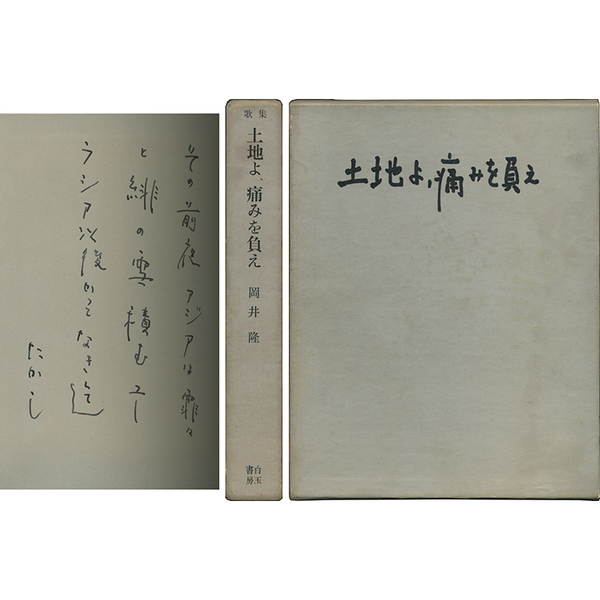 その前夜アジアは霏々
と緋の雪積むユー
ラシア以後かつてなき迄
たかし
歌集
土地よ、痛みを負え
岡井隆
白玉書房
土地よ、痛みを負え